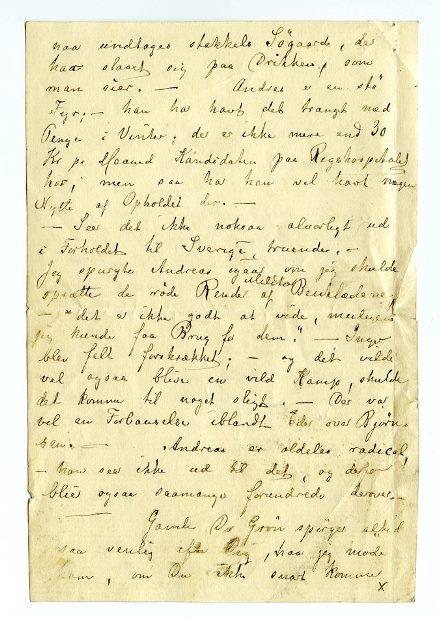 naa undtages stakkels Søgaard, der
har slaaet sig paa Drikken, som
man sier. — Andrea er en stø
Fyr, — han ha havt det trangt med
Penge i Vinter, der er ikke mere end 30
Kr pr Maaned Kandidaten paa Rigshospitalet
har, men saa ha han vel havt nogen
Nytte af Opholdet der. —
— Seer det ikke noksaa alvorligt ud
i Forholdet til Sverige, truende. —
Jeg spurgte Andreas igaar om jeg skulde
sprætte de røde Render af Benklæderne
— "det er ikke godt at vide, muligens
jeg kunde faa Brug for dem." — Inga
blev felt forskrækket; — og det vilde
vel ogsaa blive en vild Kamp, skulde
det komme til noget sligt. — Der var
vel en Forbauselse iblandt Eder over Bjørn
— Andreas er aldeles radical,
— han seer ikke ud til det, og derfor
blir ogsaa saamange forundrede derover. —
Gamle Dr Grøn spørger altid
saa venlig efter Dig, naar jeg møder
ham, om Du ikke snart kommer
x